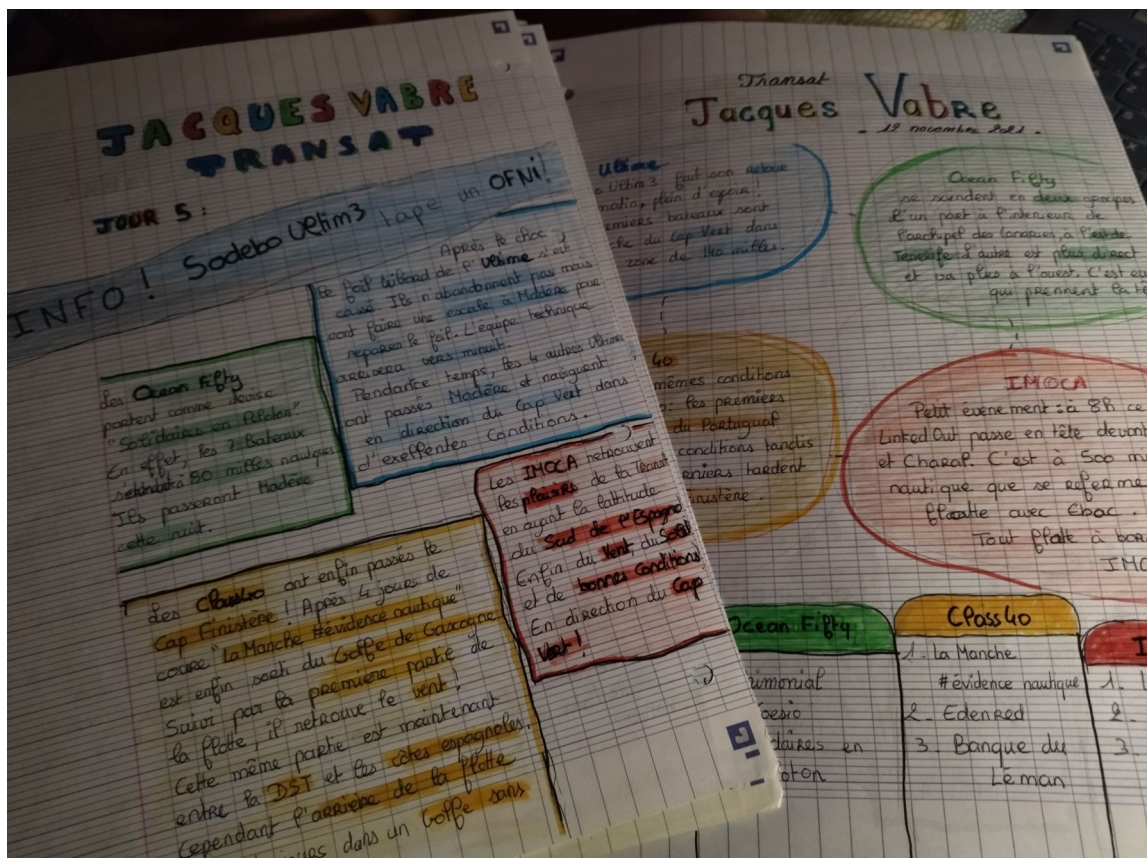 JACQUES VABRE
TRANSAT
JOUR 5 :
INFO ! Sodebo Ultim3 tape un OFNi !
Après le choc,
le foil bâbord de l'Ultime s'est
cassé. Ils n'abandonnent pas mais
vont faire une escale à Madère pour
réparer le foil. L'équipe technique
arrivera vers minuit.
Pendant ce temps, les 4 autres Ultimes
ont passés Madère et naviguent
en direction du Cap Vert dans
d'exellentes Conditions.
Les Ocean Fifty
portent comme devise
"Solidaires en Peloton"
En effet, les 7 Bateaux
à 80 milles nautiques
Ils passeront Madère
cette nuit.
Les IMOCA retrouvent
les plaisirs de la transat
en ayant la lattitude
du Sud de l'Espagne
Enfin du Vent, du Soleil
et de bonnes Conditions
En direction du Cap
Vert !
Les Class40 ont enfin passés le
Cap Finistère ! Après 4 jours de
course "La Manche #évidence nautique"
est enfin sorti du Golfe de Gascogne
Suivi par la première partie de
la flotte, il retrouve le vent !
Cette même partie est maintenant
entre la DST et les côtes espagnoles.
Cependant l'arrière de la flotte
dans un Golfe sans
Transat
Jacques Vabre
- 12 novembre 2021 -
Ultime
Ultim3 fait son retour
matin, plein d'espoir !
premiers bateaux sont
du Cap Vert dans
zone de 140 milles.
Ocean Fifty
se scindent en deux groupes
l'un part à l'intérieur de
l'archipel des Canaries, à l'est de
Tenerife, l'autre est plus direct
et va plus à l'ouest. C'est
qui prennent la
40
mêmes conditions
: les premiers
du Portugal
conditions tandis
derniers tardent
Finistère.
IMOCA
Petit évènement : à 8h
LinkedOut passe en tête devant
et Charal. C'est à 500
nautique que se referme
flotte avec Ebac.
Tout flotte à
IMOCA
Ocean Fifty
Primonial
Koesio
Solidaires en
Peloton
Class40
1. La Manche
#évidence nautique
2. Edenred
3. Banque du
Léman
1.
2.
3.